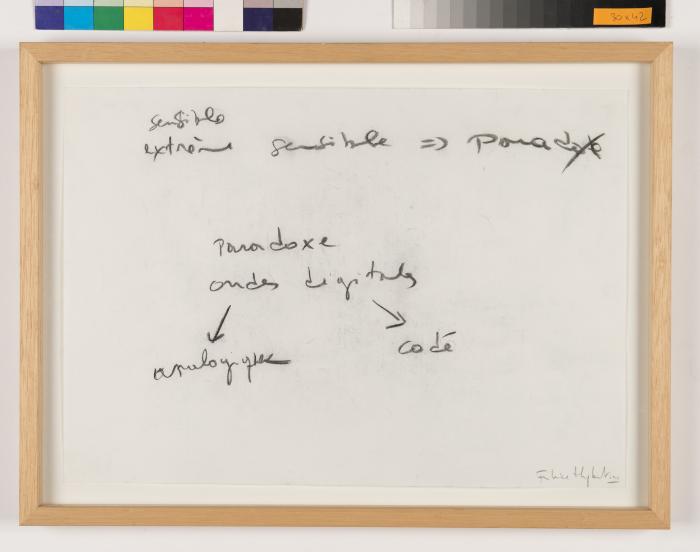 30x42
sensible
extrême sensible => Paradoxe
paradoxe
ondes digitales
analogique codé